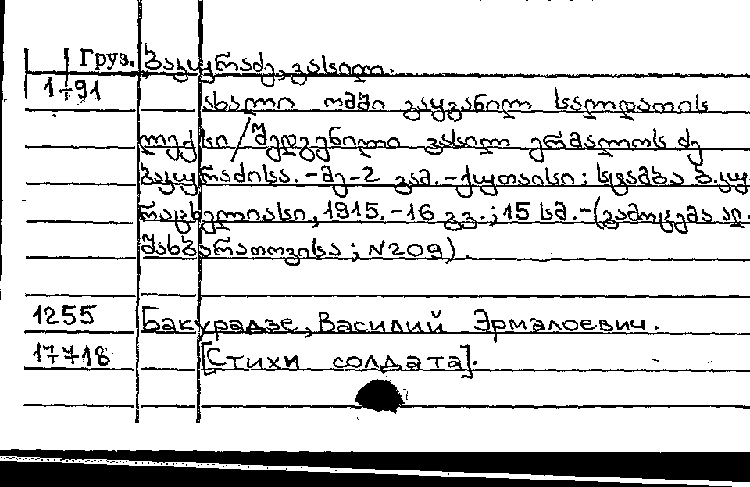 Груз. ბაკურაძე, ვასილ.
1-91
ახალი ომში გაყვანილ სალდათის
ლექსი/შედგენილი ვასილ ერმალოს ძე
ბაკურაძისა.-მე-2 გამ.-ქუთაისი: სტამბა
რაცხელიასი, 1915.-16 გვ.; 15 სმ.-(გამოცემა
მახბარათოვისა; N209).
1255 Бакурадзе, Василий Эрмалоевич.
17718 [Стихи солдата].